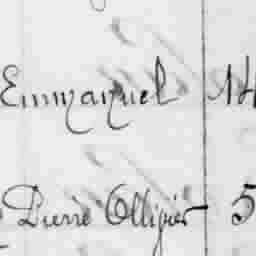 Emmanuel 14
Pierre Ollivier 5